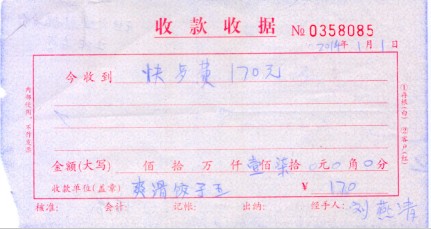 收款收据 № 0358085
2014年1月1日
今收到 快乡菜 170元
金额(大写) 佰拾万仟壹佰柒拾0元0角0分
收款单位(盖章) ¥ 170
核准: 会计: 记帐: 出纳: 经手人: 刘燕清
内部使用,不作发票